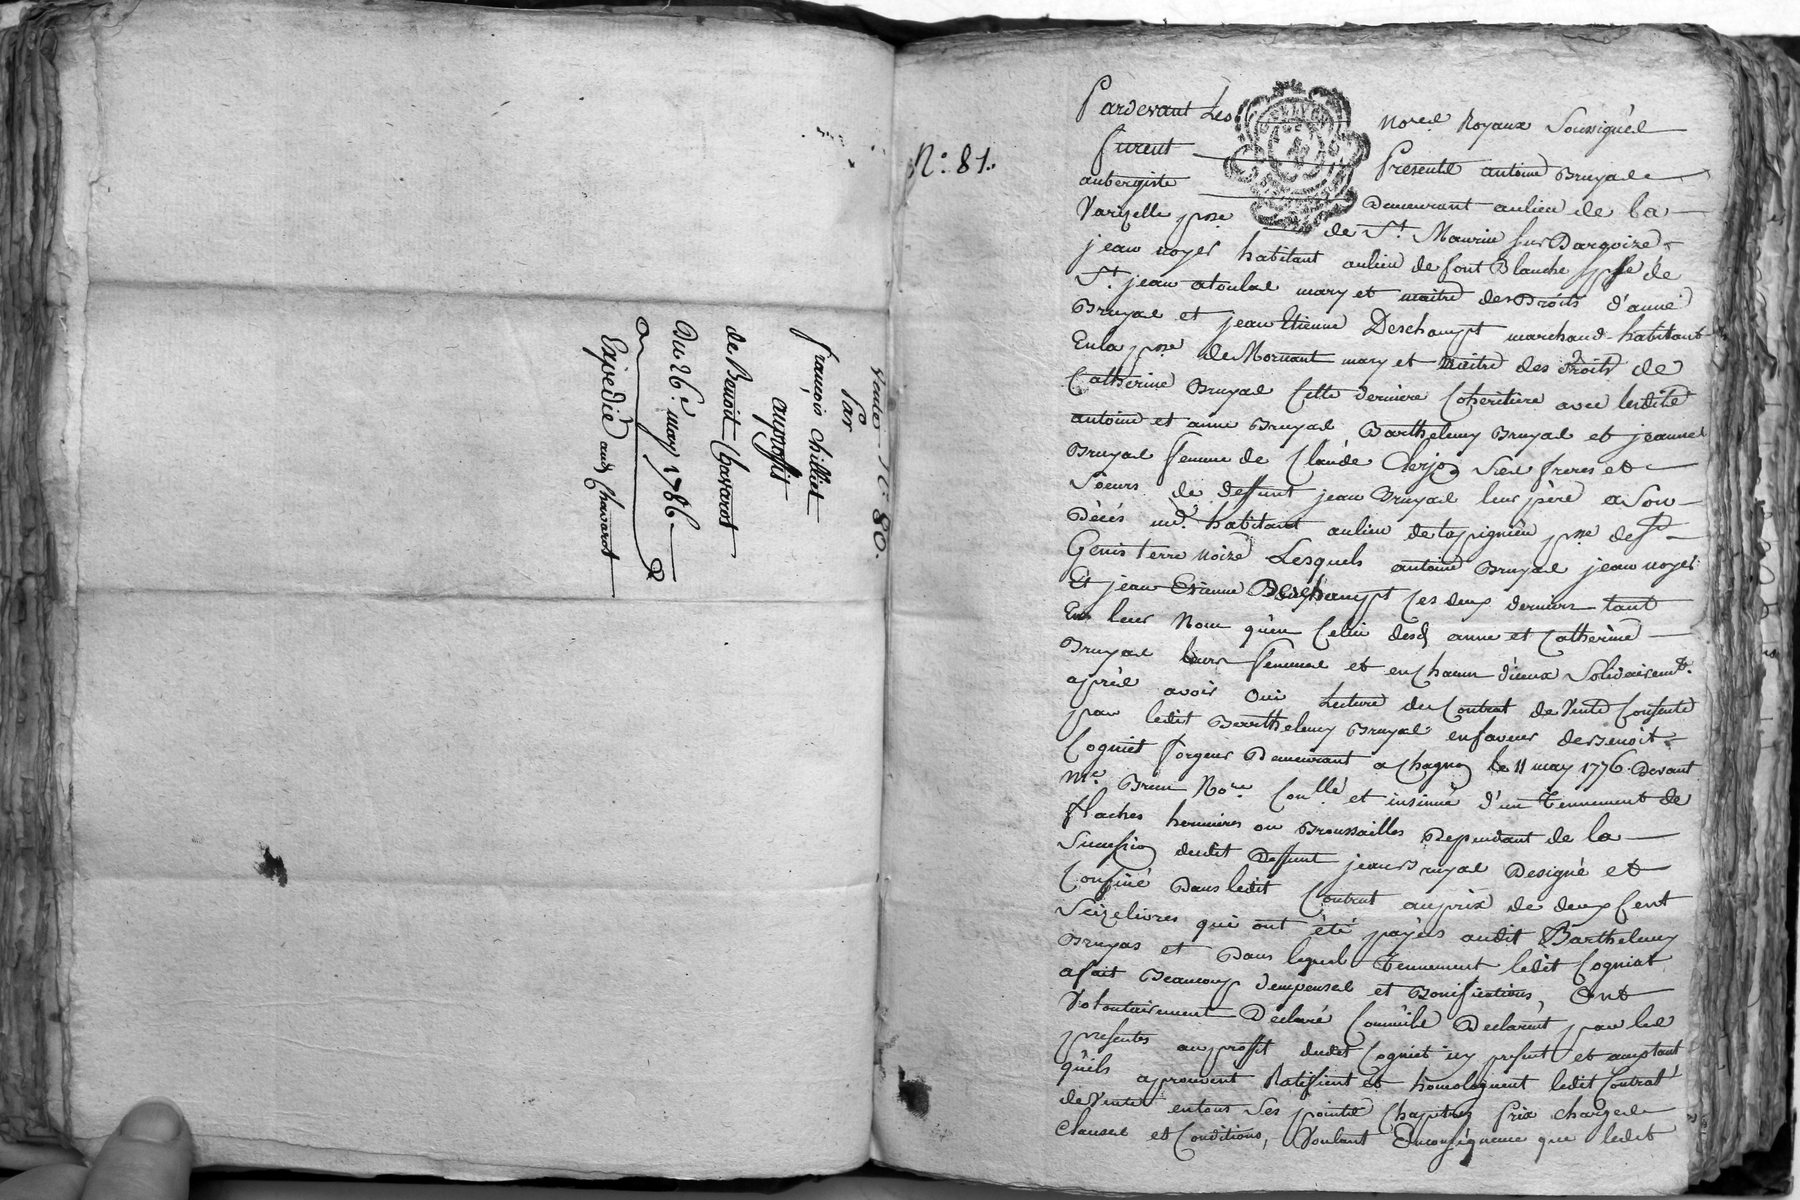 Vente N.° 80.
Par
françois Chilliet
auproffit
de Benoit Chavarot
Du 26.e may 1786
Expedié aud. Chavarot
N.° 81.
Pardevant Les Nores Royaux Soussignés
furent Presents antoine Bruyas
aubergiste Demeurant aulieu de la
Varizelle psse de St. Maurice sur Dargoire
jean noyer habitant aulieu de font Blanche psse de
St. jean atoulas mary et maitre des Droits d'anne
Bruyas et jean Etienne Deschampt marchand habitant
En la psse de Mornant mary et maitre des Droits de
Catherine Bruyas Cette derniere Coheritiere avec lesdits
antoine et anne Bruyas Barthelemy Bruyas et jeanne
Bruyas femme de Claude Clerjon Ses freres et
Soeurs de deffunt jean Bruyas leur père a Son
Décés md. habitant aulieu de psse de St.
Genis terre noize Lesquels antoine Bruyas jean noyer
Et jean Etienne Deschampt Ces deux derniers tant
En leur Nom qu'en Celui desd. anne et Catherine
Bruyas leurs femmes et en Chacun d'ieux Solidairemt.
après avoir Oui Lecture du Contrat de Vente Consente
par ledit Berthelemy Bruyas enfaveur de Benoit
Cogniet forgeur Demeurant a Chagnon le 11 may 1776. Devant
Me. Brun Nore Conllé et insinué d'un Tennement de
flaches hermieres ou Broussailles Dependant de la
Succession dudit Deffunt jean Bruyas Designé et
Confiné Dans ledit Contrat auprix de deux Cent
Seize livres qui ont été payées audit Barthelemy
Bruyas et Dans lequel Tennement ledit Cogniat
afait Beaucoup dempenses et Bonifications, Ont
Volontairement Declaré Comm'ils Declarent par les
presentes auproffit dudit Cogniet icy present et acceptant
qu'ils aprouvent Ratifient et homologuent ledit Contrat
de Vente entous Ses points Chapitres Prix charges
Clauses et Conditions, Voulant Enconséquence que ledit